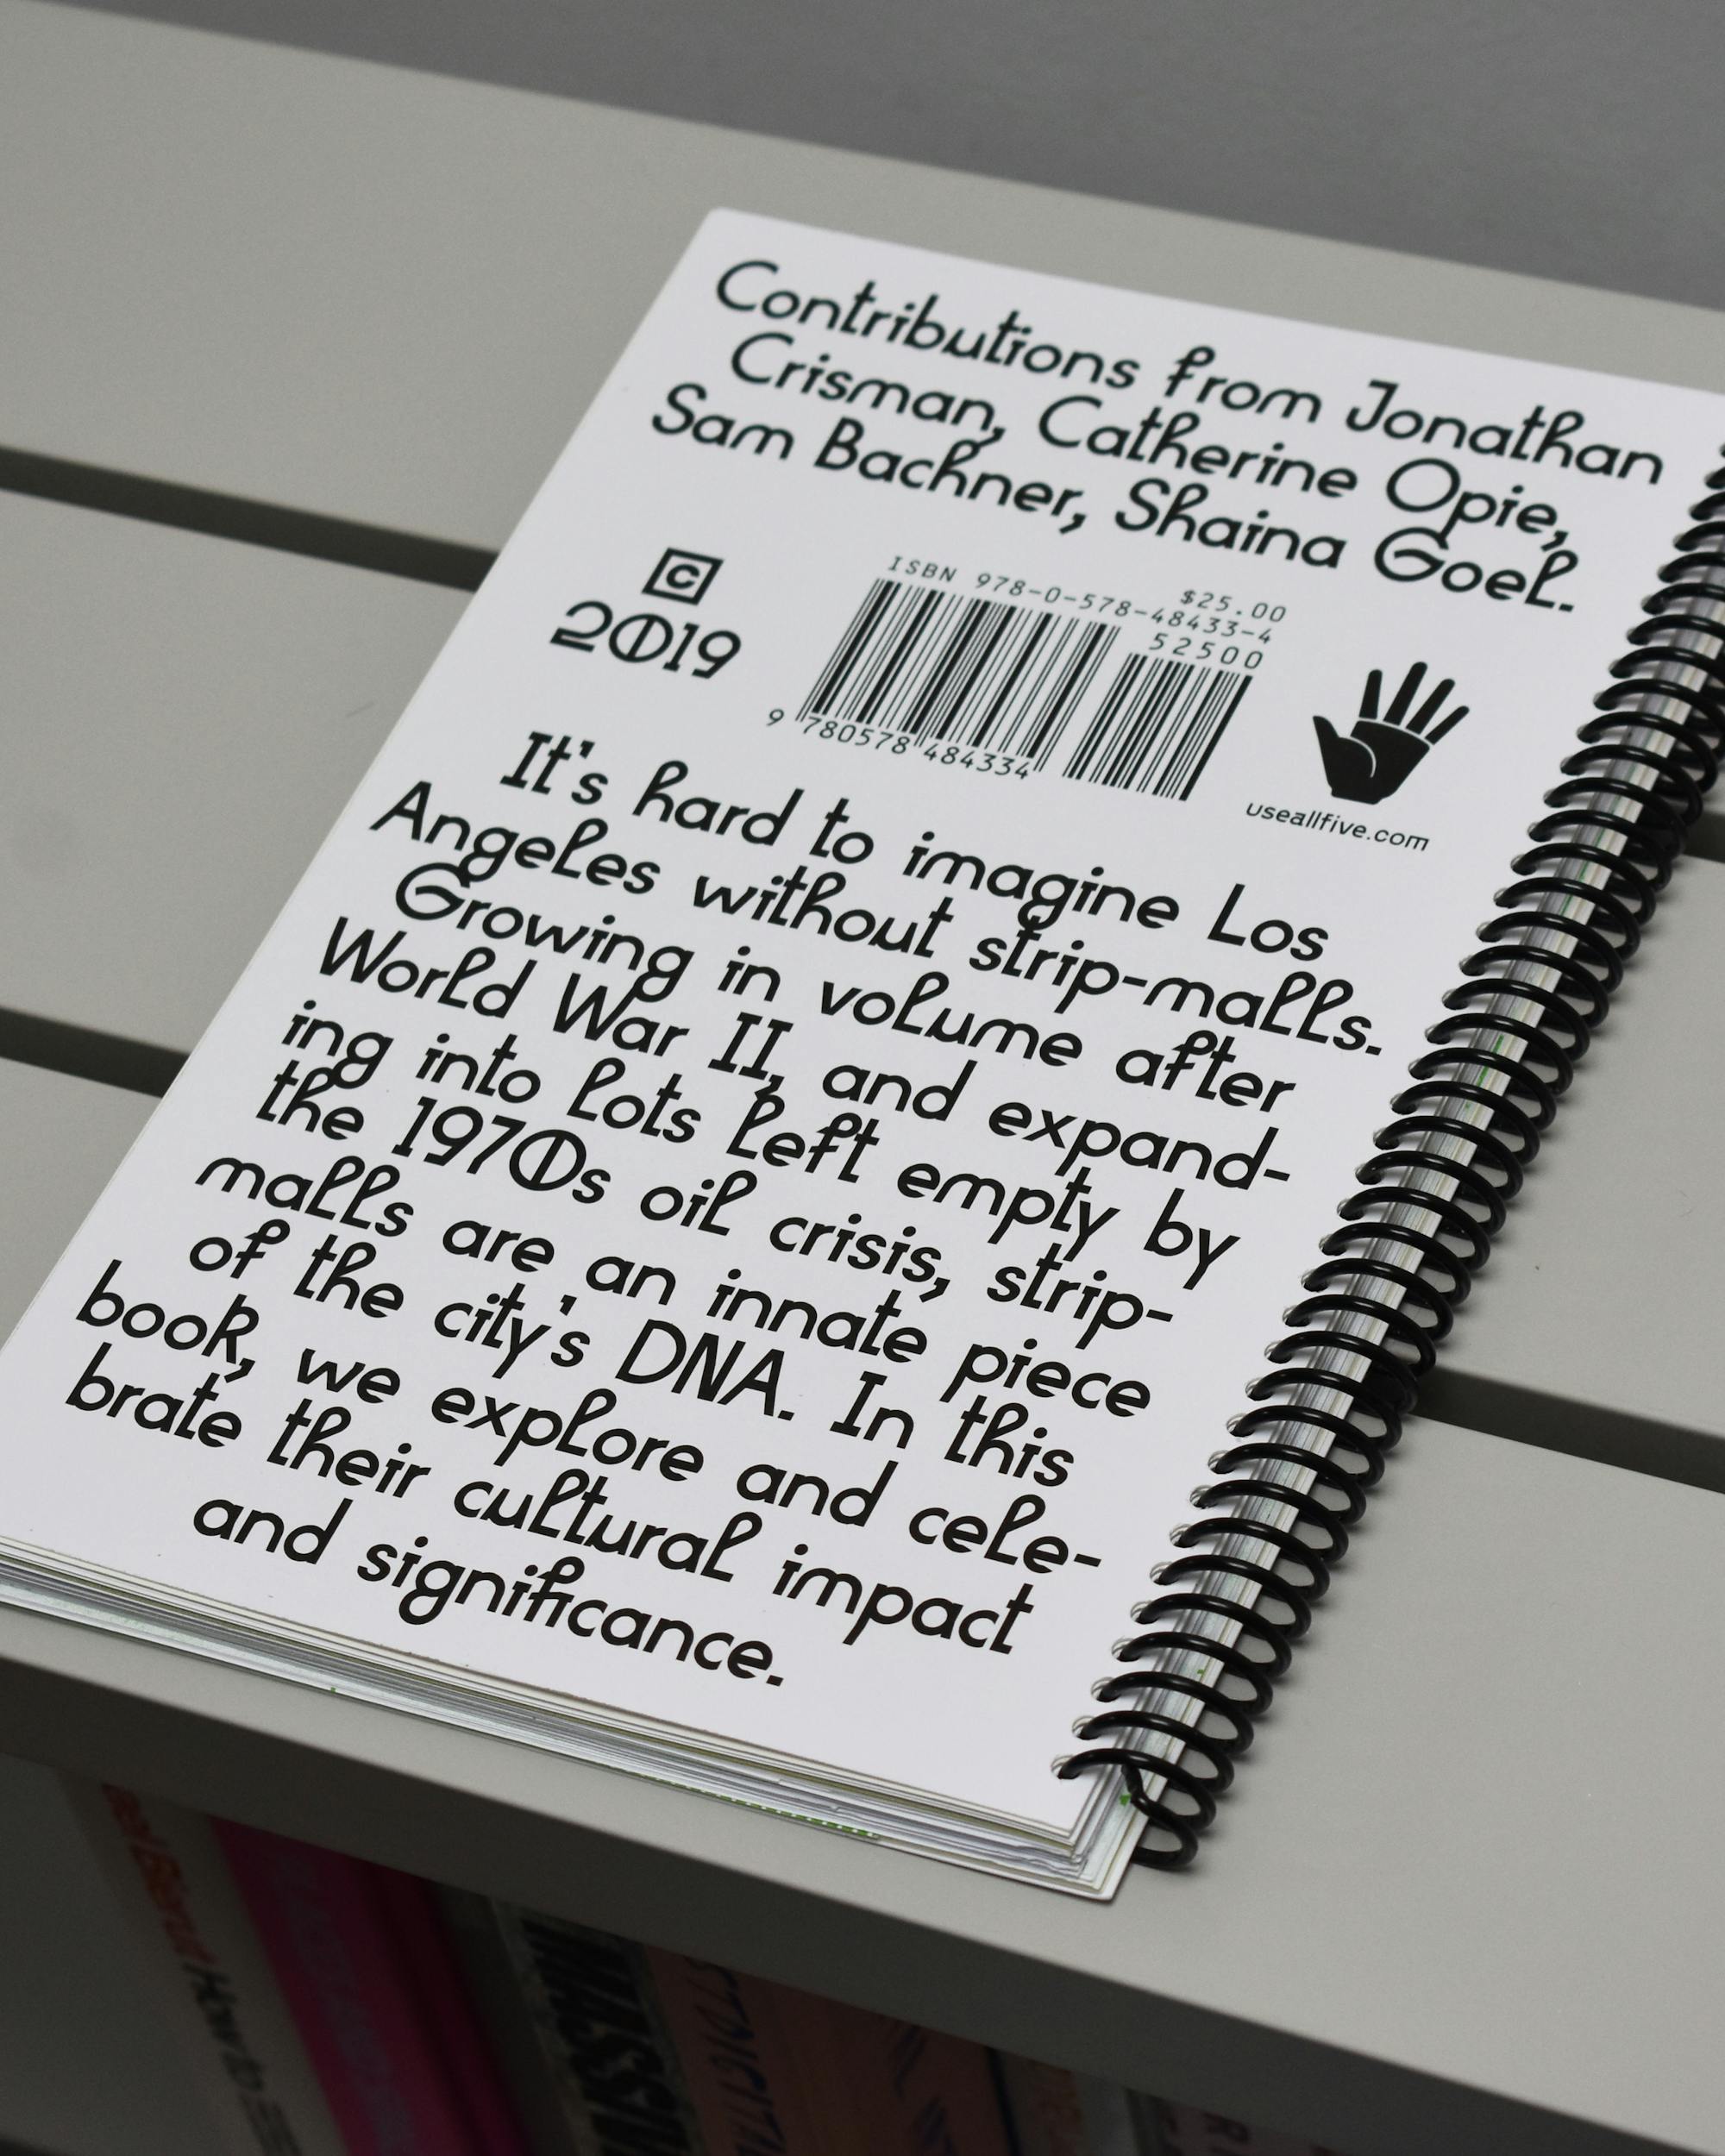 Contributions from Jonathan
Crisman, Catherine Opie,
Sam Bachner, Shaina Goel.
C
2019
$25.00
ISBN 978-0-578-48433-4
52500
9 780578 484334
useallfive.com
It's hard to imagine Los
Angeles without strip-malls.
Growing in volume after
World War II, and expand-
ing into lots left empty by
the 1970s oil crisis, strip-
malls are an innate piece
of the city's DNA. In this
book, we explore and cele-
brate their cultural impact
and significance.
How to